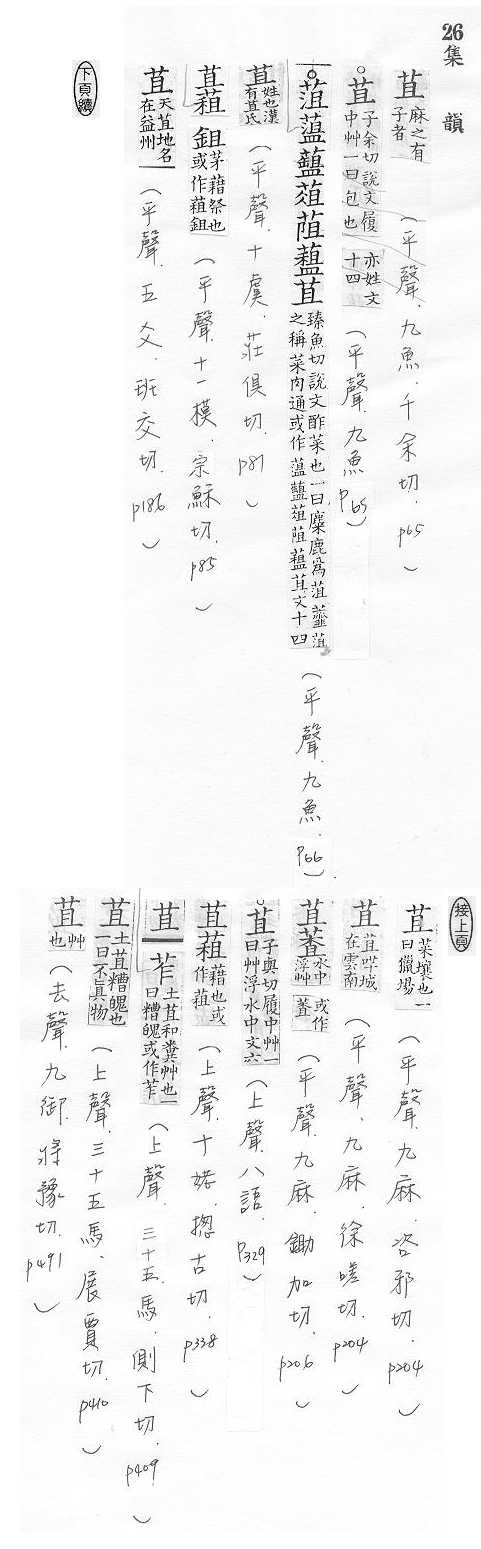 26
集韻
苴 麻之有子者 (平聲.九魚.千余切.p65)
苴 子余切說文履中艸一曰包也 亦姓文十四 (平聲.九魚 p65)
菹 蕰 䪢 葅 蒩 藴 苴 臻魚切說文酢菜也一曰麋鹿為菹虀菹之稱菜肉通或作 文十四 (平聲.九魚.p66)
苴 姓也漢有苴氏 (平聲.十虞.莊俱切.p81)
苴 蒩 鉏 茅藉祭也或作蒩鉏 (平聲.十一模.宗穌切.p85)
苴 天苴地名在益州 (平聲.五爻.班交切.p186)
下頁續
接上頁
苴 菜壤也一曰獵場 (平聲.九麻.咨邪切.p204)
苴 苴咩城在雲南 (平聲.九麻.徐嗟切.p204)
苴 水中浮艸 或作 (平聲.九麻.鋤加切.p206)
苴 子與切履中艸一曰艸浮水中文六 (上聲.八語.p329)
苴 蒩 藉也或作蒩 (上聲.十姥.摠古切.p338)
苴 苲 土苴和糞艸也一曰糟魄或作苲 (上聲.三十五馬.側下切.p409)
苴 土苴糟魄也一曰不眞物 (上聲.三十五馬.展賈切.p410)
苴 艸也 (去聲.九御.將豫切.p491)